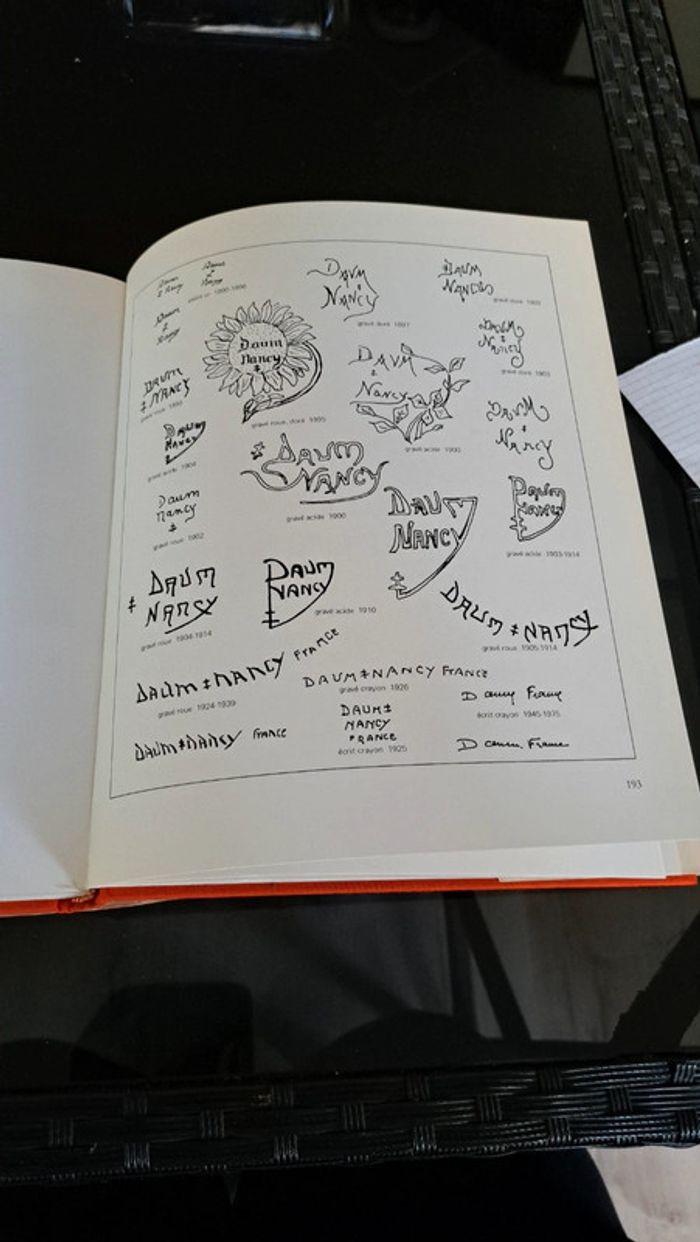 Daum
Nancy
DAUM
NANCY
gravé doré 1897
DAUM
NANCY
gravé doré
Daum
Nancy
‡
gravé roue, doré 1895
DAUM
NANCY
DAUM
Nancy
gravé acide 1900
DAUM
Nancy
gravé doré 1903
DAUM
NANCY
gravé acide
DAUM
Nancy
‡ DAUM
NANCY
gravé acide 1900
Daum
nancy
‡
gravé roue 1902
DAUM
NANCY
DAUM
NANCY
gravé acide 1903-1914
‡ DAUM
NANCY
gravé roue 1904-1914
DAUM
NANCY
gravé acide 1910
DAUM ‡ NANCY
gravé roue 1905-1914
DAUM ‡ NANCY FRANCE
gravé roue 1924-1939
DAUM ‡ NANCY FRANCE
gravé crayon 1926
écrit crayon 1945-1975
DAUM ‡ NANCY FRANCE
DAUM ‡
NANCY
FRANCE
écrit crayon 1925
Daum France
193